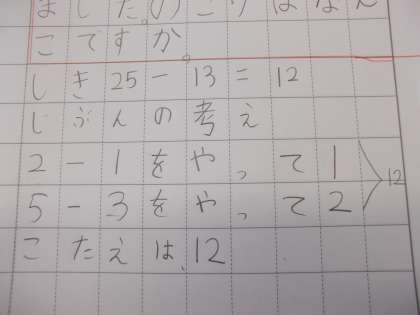 ました。のこりはなん
こですか。
しき25－13＝12
じぶんの考え
2－1をやって1
5－3をやって2 12
こたえは、12